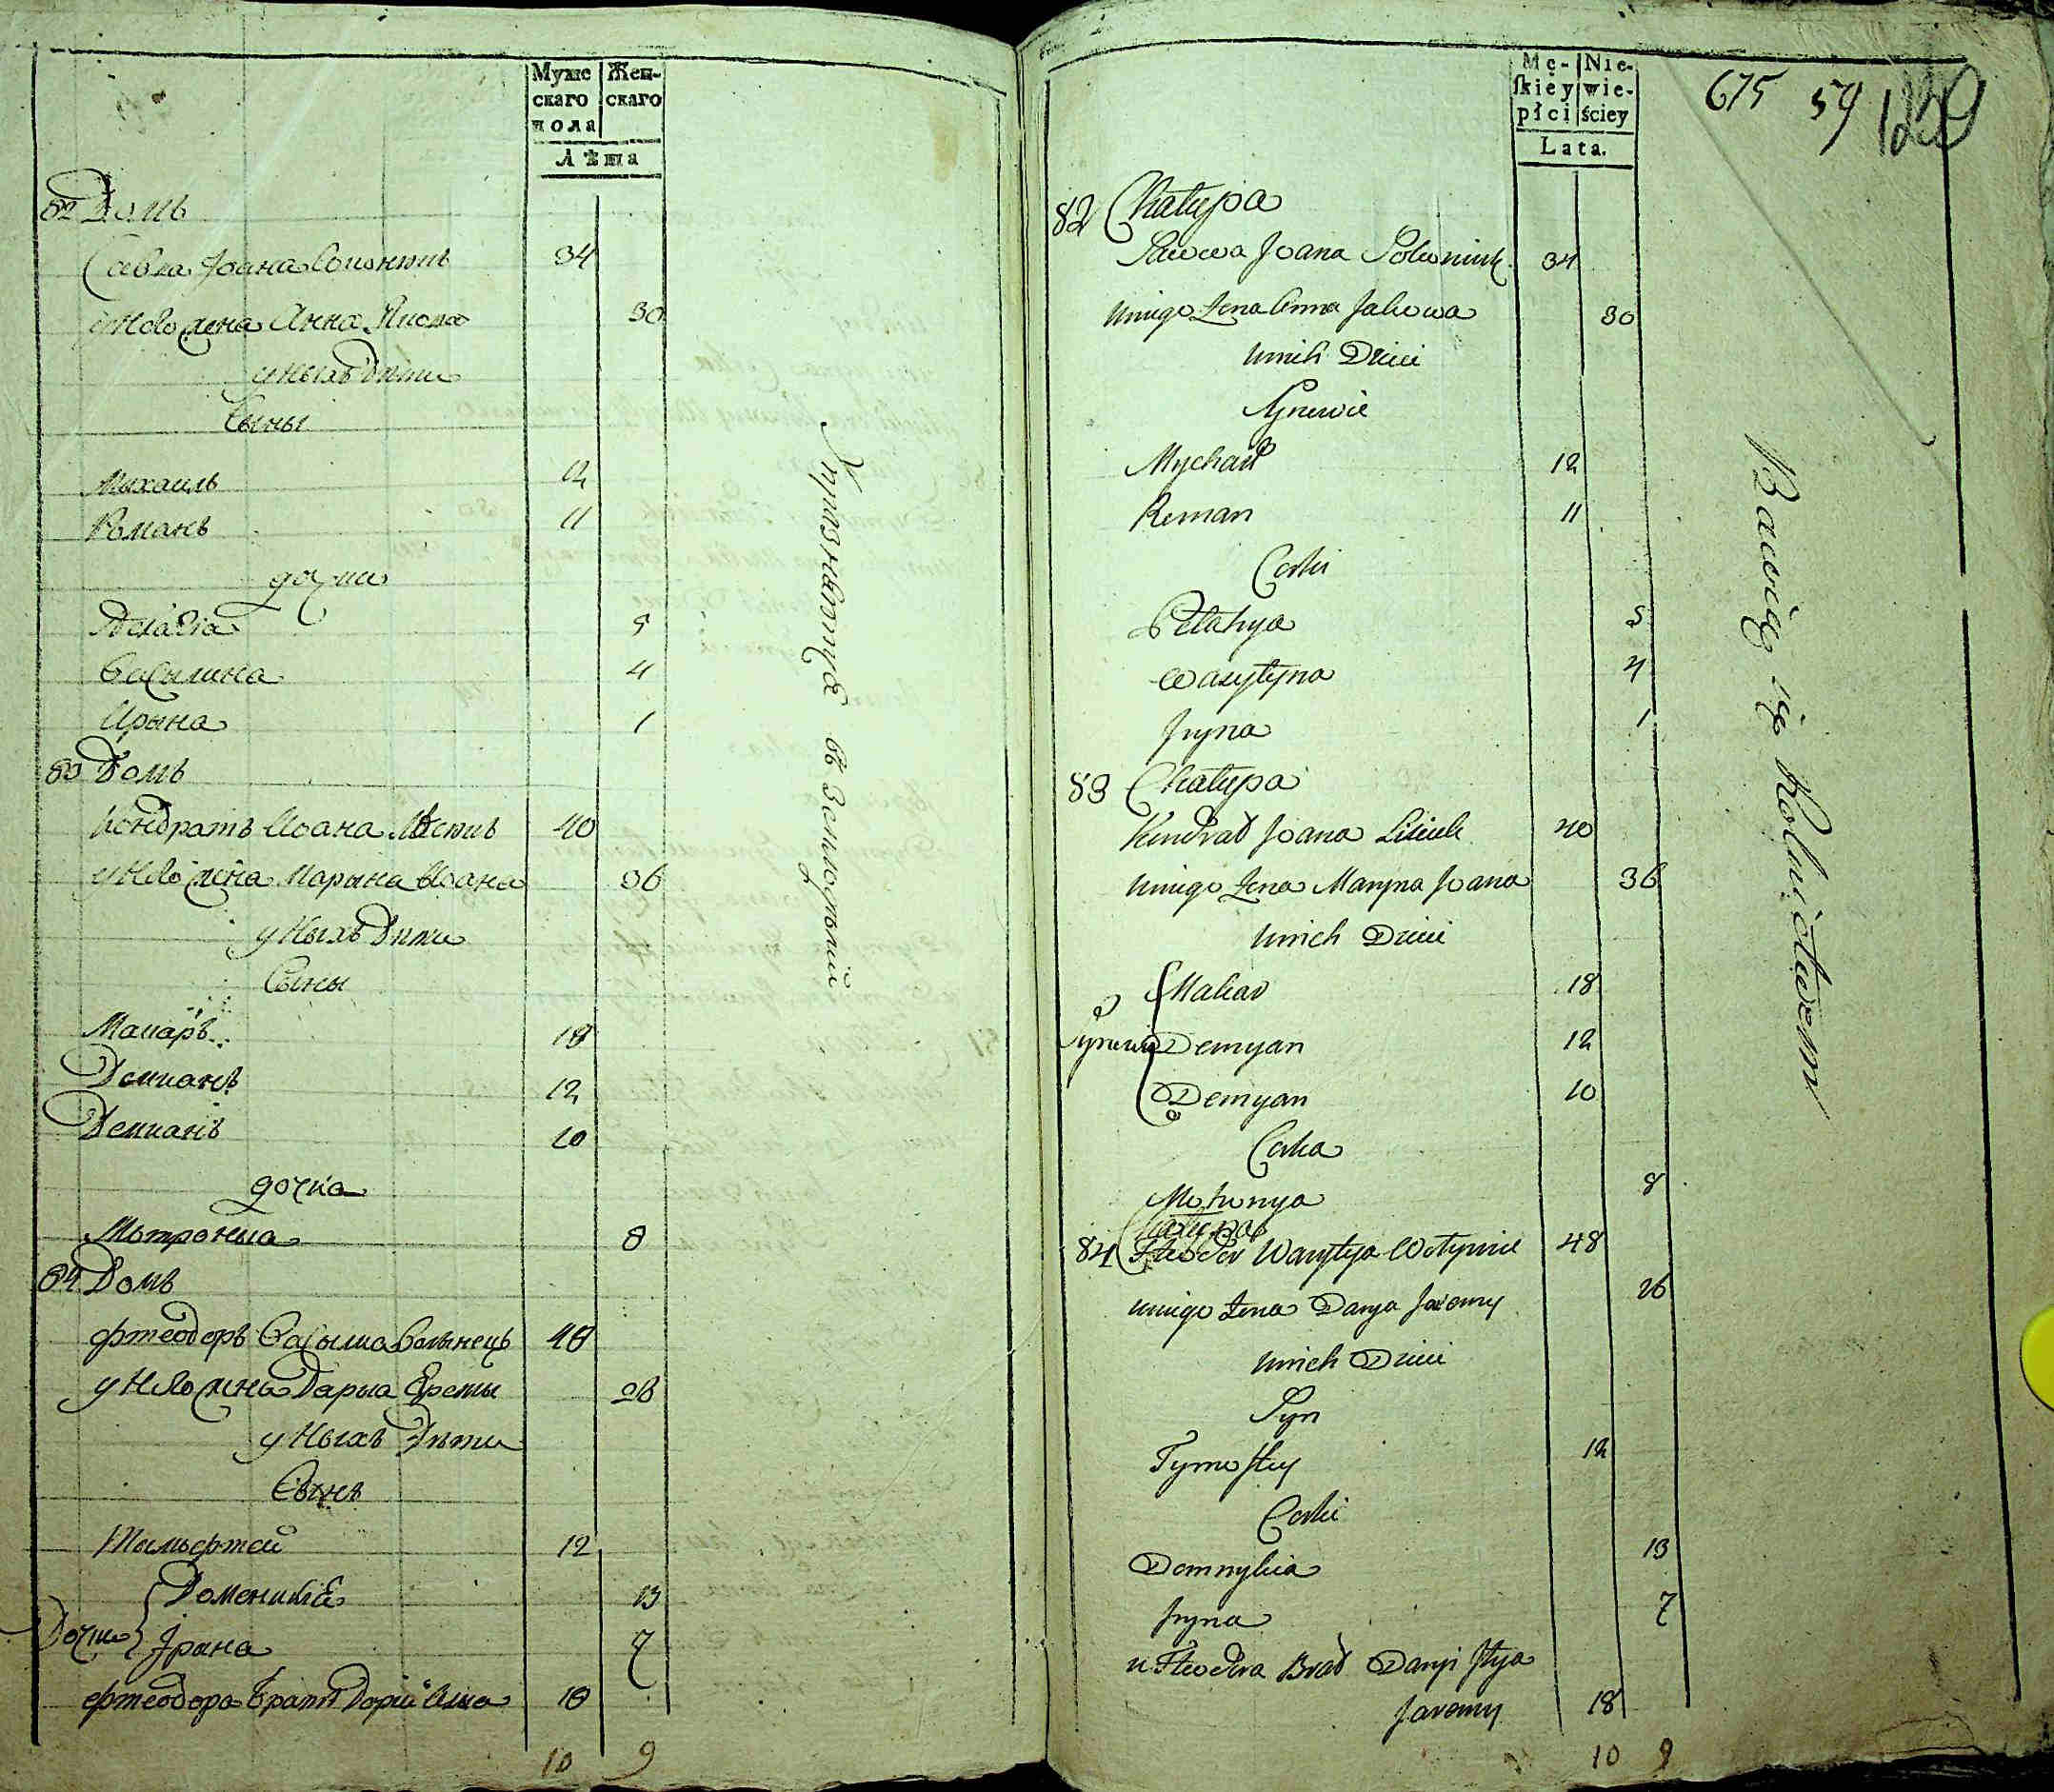 Муже
скаго
пола
Жен-
скаго
Лѣта
82 Домъ
Савва Іоана 34
у него жена Анна Якова 30
у ныхъ дѣти
Сыны
Михаилъ 12
Романъ 11
дочки
5
Васылина 4
Ирына 1
83 Домъ
Кондратъ Иоана 40
у него жена Марына Иоана 36
у ныхъ дѣти
Сыны
Макаръ 18
Демианъ 12
Демианъ 10
дочка
Мотрониа 8
84 Домъ
Фтеодоръ Васыліа Волынецъ 48
у него жена Дариа Еремы 26
у ныхъ дѣти
Сынъ
Тимофтей 12
Доменикіа 13
Дочки Ірина 7
Фтеодора братъ Даріи Илиа 18
10 9
упразнаютца въ землоробий
Mę-
skiey
płci
Nie-
wie-
ściey
Lata.
675 59
82 Chałupa
Sawwa Joana 34
uniego Żena Anna Jakowa 30
unich Dzieci
Synowie
Mychaił 12
Roman 11
Corki
Pełahya 5
Wasyłyna 4
Iryna 1
83 Chałupa
Kondrad Joana Lisiuk 40
uniego Żena Maryna Joana 36
unich Dzieci
Makar 18
Synowie Demyan 12
Demyan 10
Corka
Motronya 8
Chałupa
84 Fteodor Wasyłya Wołyniec 48
uniego Żena Darya Jaremy 26
unich Dzieci
Syn
Tymoftey 12
Corki
Domnykia 13
Iryna 7
u Fteodora Brat Daryi Ilya
Jaremy 18
10 9
Bawią się Rolnictwem